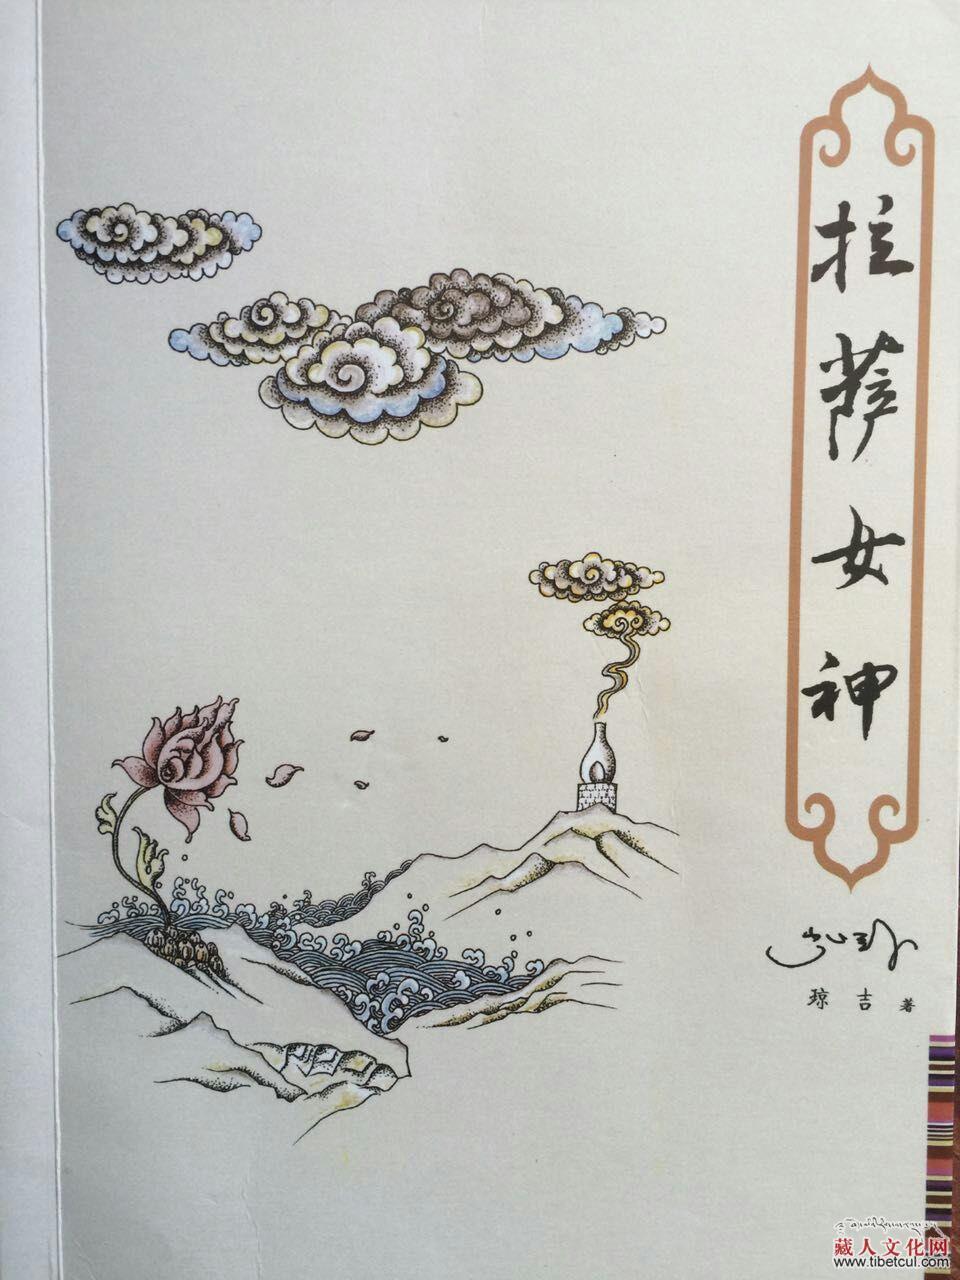 拉萨女神
琼吉 著
藏人文化网
www.tibetcul.com